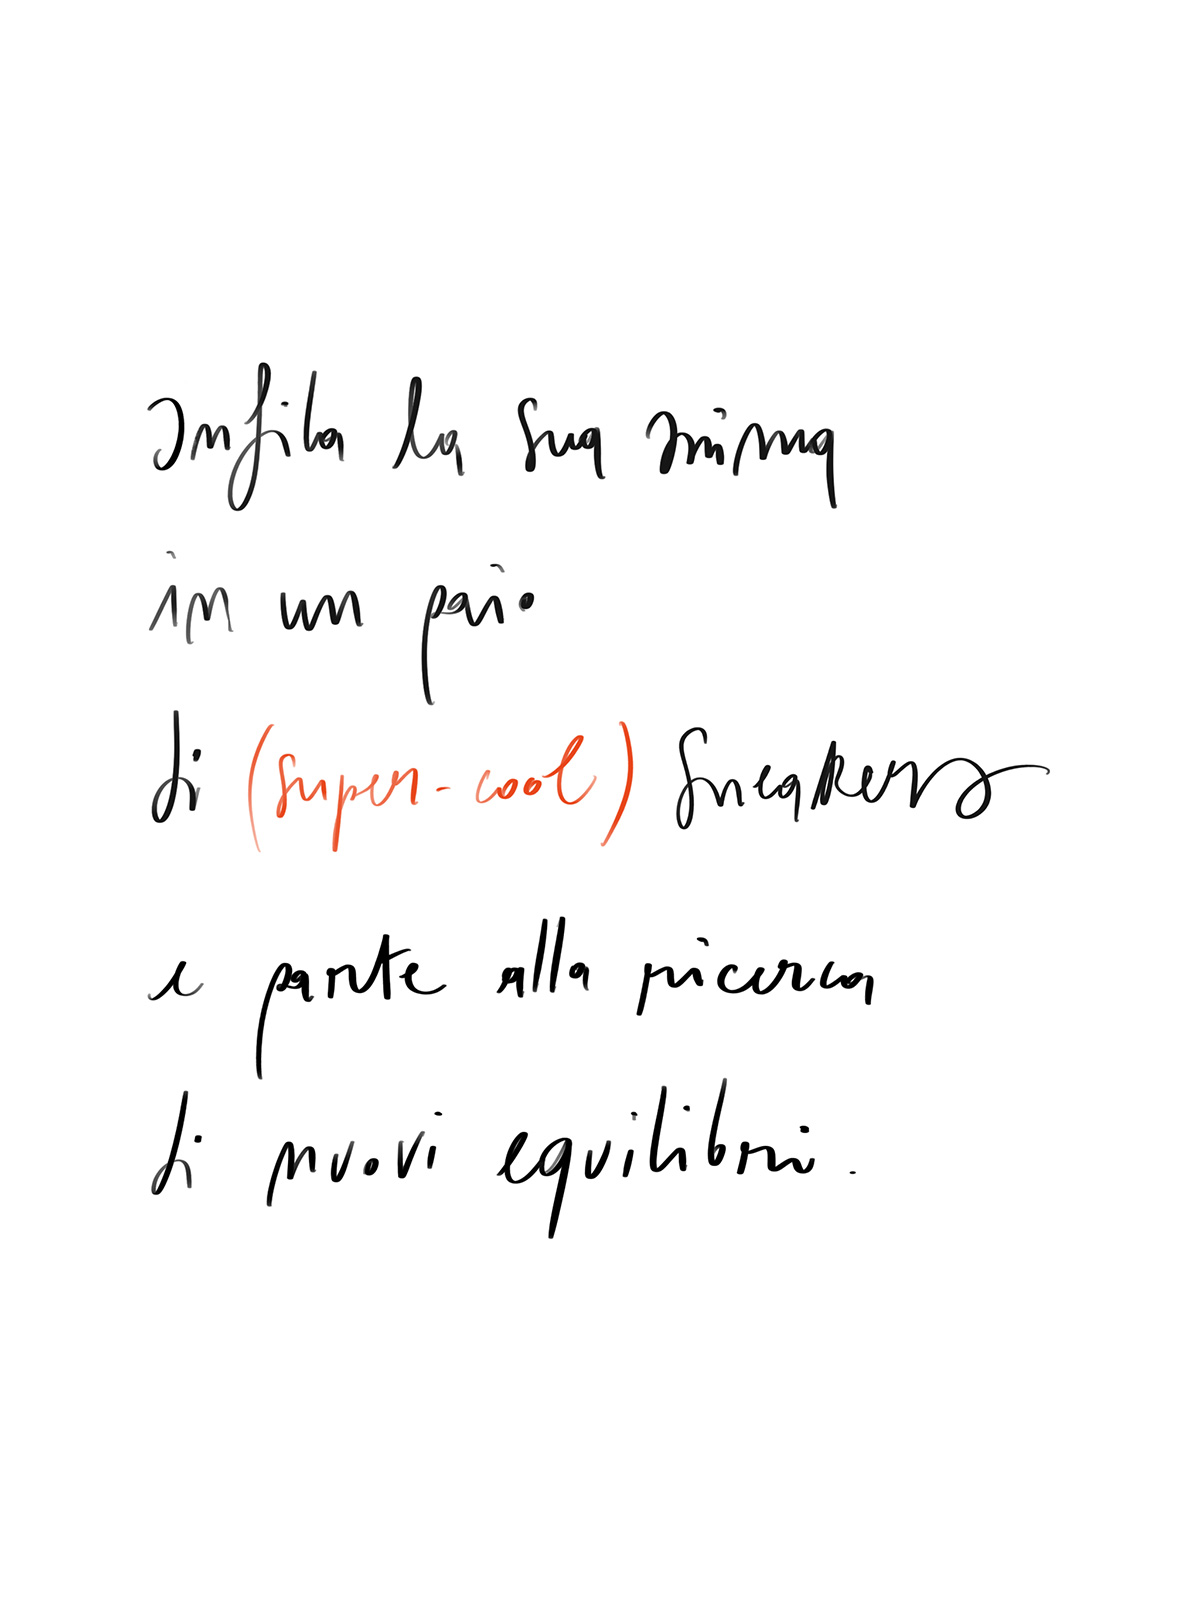 Infila la sua anima
in un paio
di (super-cool) sneakers
e parte alla ricerca
di nuovi equilibri.